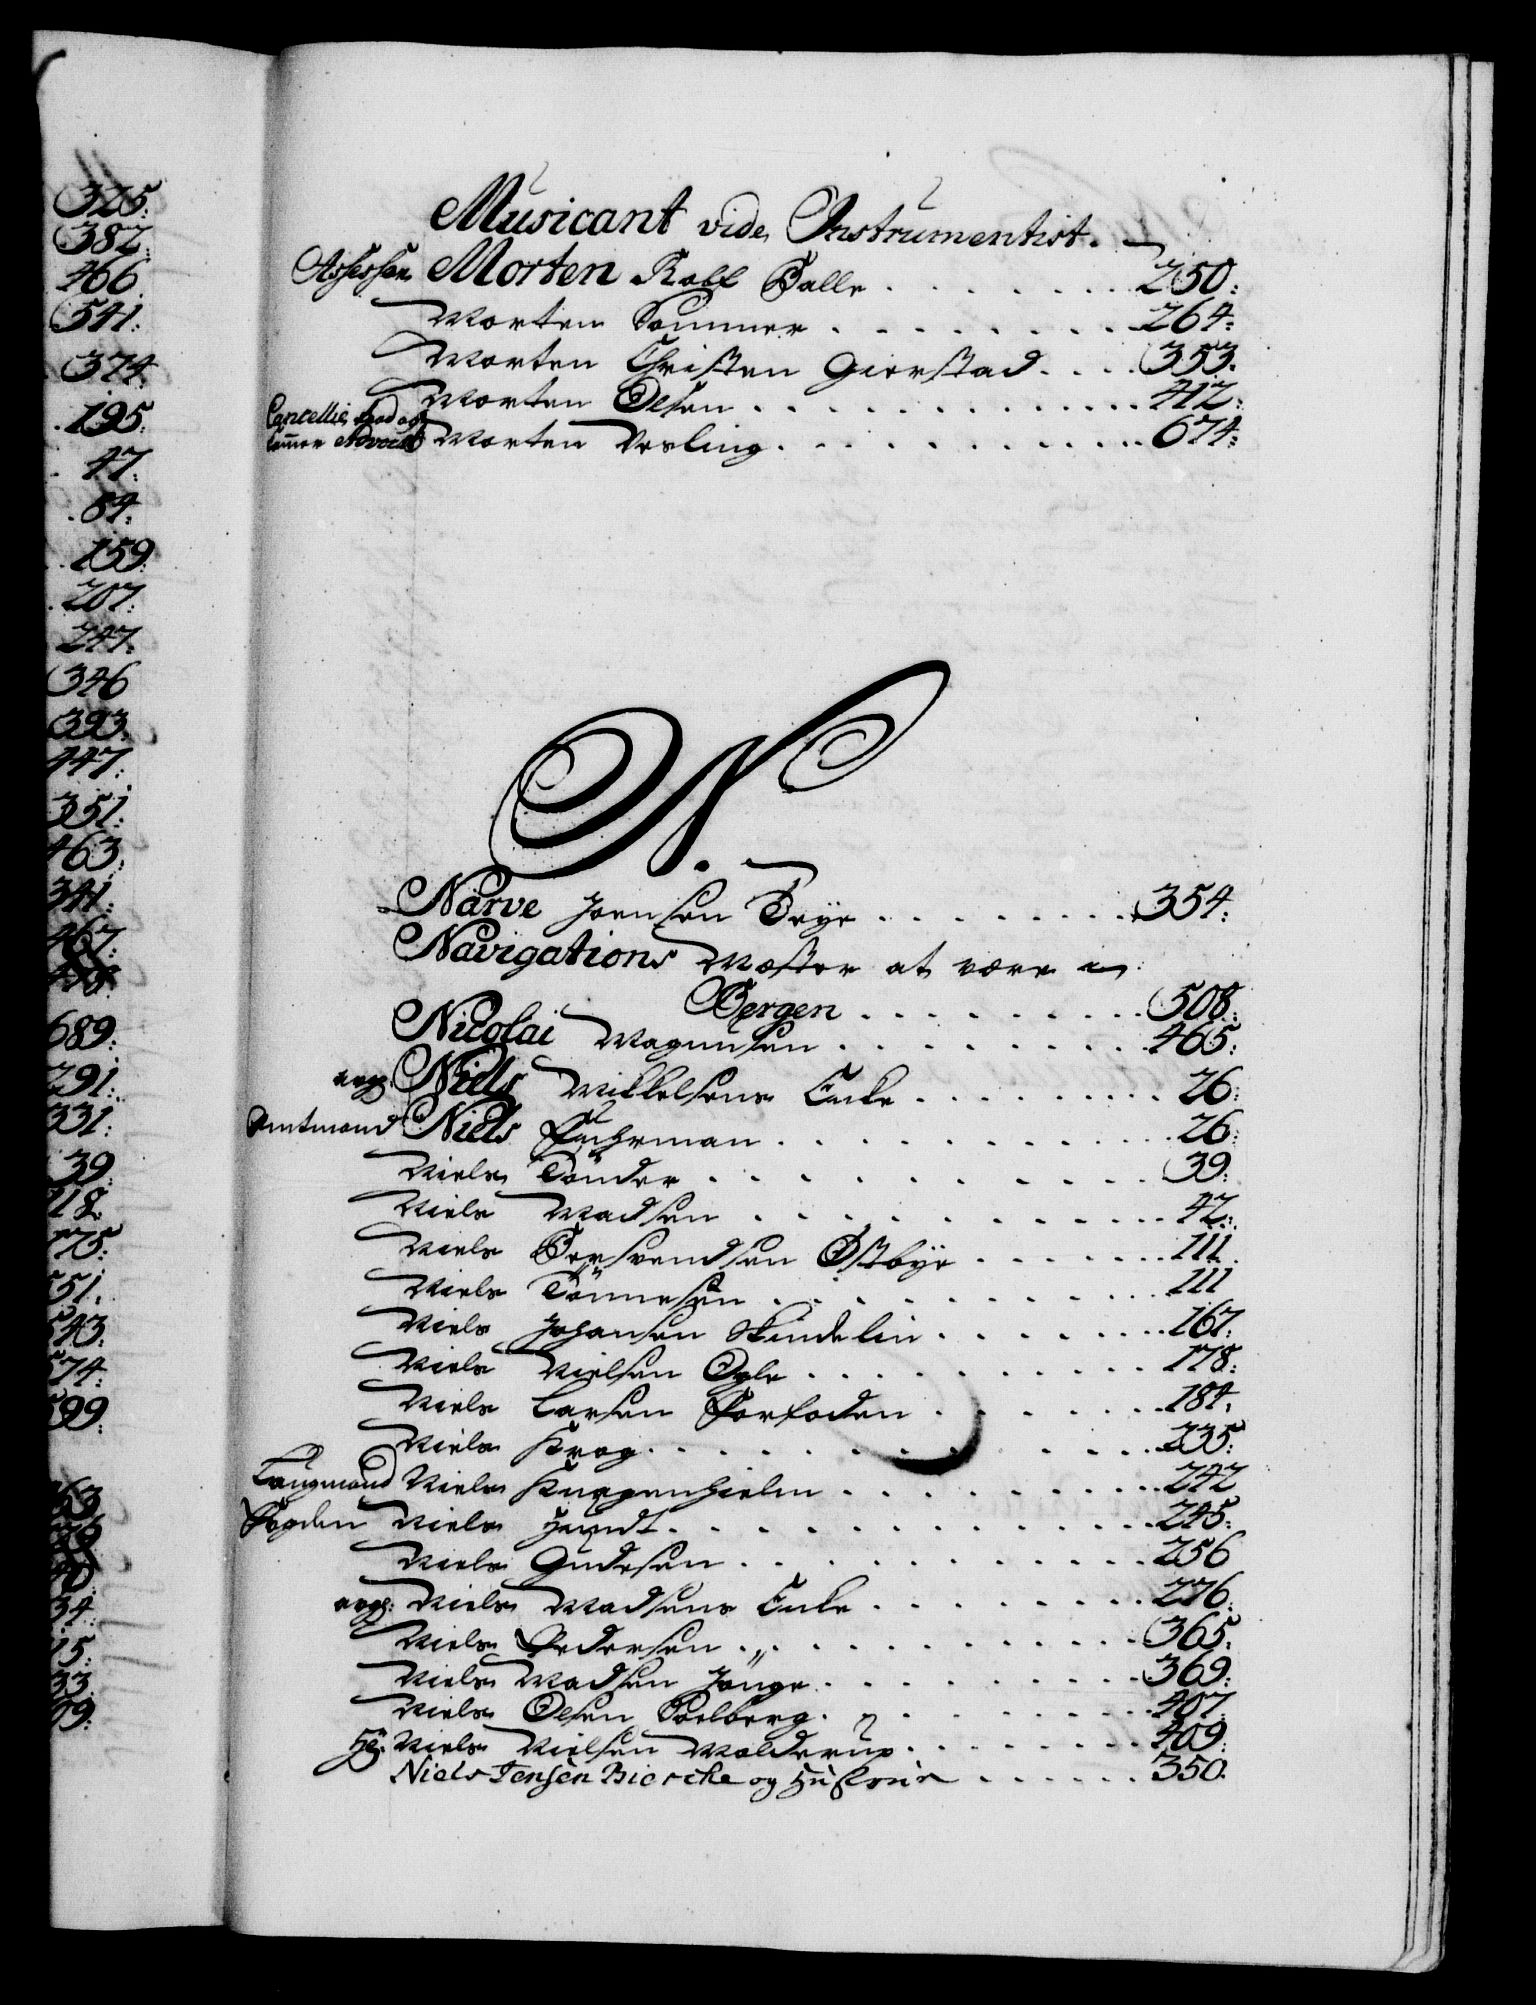 325:
382:
466
541:
374
195:
47:
84:
159
207:
247:
346
393
447:
351:
463
341:
467:
689:
291:
331:
39
118
175:
551.
543:
574:
599
Musicant vide Instrumentist.
Assessor Morten Rolf Balle . . . . . . . . 250:
Morten Sommer . . . . . . . . . 264:
Morten Christen Gierstad . . . . 353.
Morten Olsen . . . . . . . . . . . . . 412:
Cancellie Raad og
Cam̄er Advocat Morten Vesling . . . . . . . . . . . . . 674:
N.
Narve Joensen Trye . . . . . . . . . 354:
Navigations Mester at være in
Bergen . . . . . . . . . . 508:
Nicolai Magnusen . . . . . . . . . . 465:
Niels Mikkelsens Encke . . . . . . . . . 26:
Amtmand Niels Fuhrman . . . . . . . . . . . . 26:
Niels Tönder . . . . . . . . . . . 39:
Niels Madsen . . . . . . . . . . . 42:
Niels Torsvendsen Östbye . . . . . . 111
Niels Tönnesen . . . . . . . . . . . . 111
Niels Johansen Skindelin . . . . . . . . 167:
Niels Nielsen Ogle . . . . . . . . . . . 178:
Niels Larsen Forfoden . . . . . . . 184.
Niels Krog . . . . . . . . . . . . . . 235:
Laugmand Niels Knagenhielm . . . . . . . . . . 242
Fogden Niels Hundt . . . . . . . . . . . . . 245:
Niels Gudesen . . . . . . . . . . . . 256
Niels Madsens Encke . . . . . . . . . 276:
Niels Pedersen . . . . . . . . . . . . 365:
Niels Madsen Jönge . . . . . . . . . . 369:
Niels Olsen Soelberg . . . . . . . . . 407.
Hr. Niels Nielsen Wolderup . . . . . . . . 409:
Niels Jensen Biercke og Hustrue . . . . . . 350.